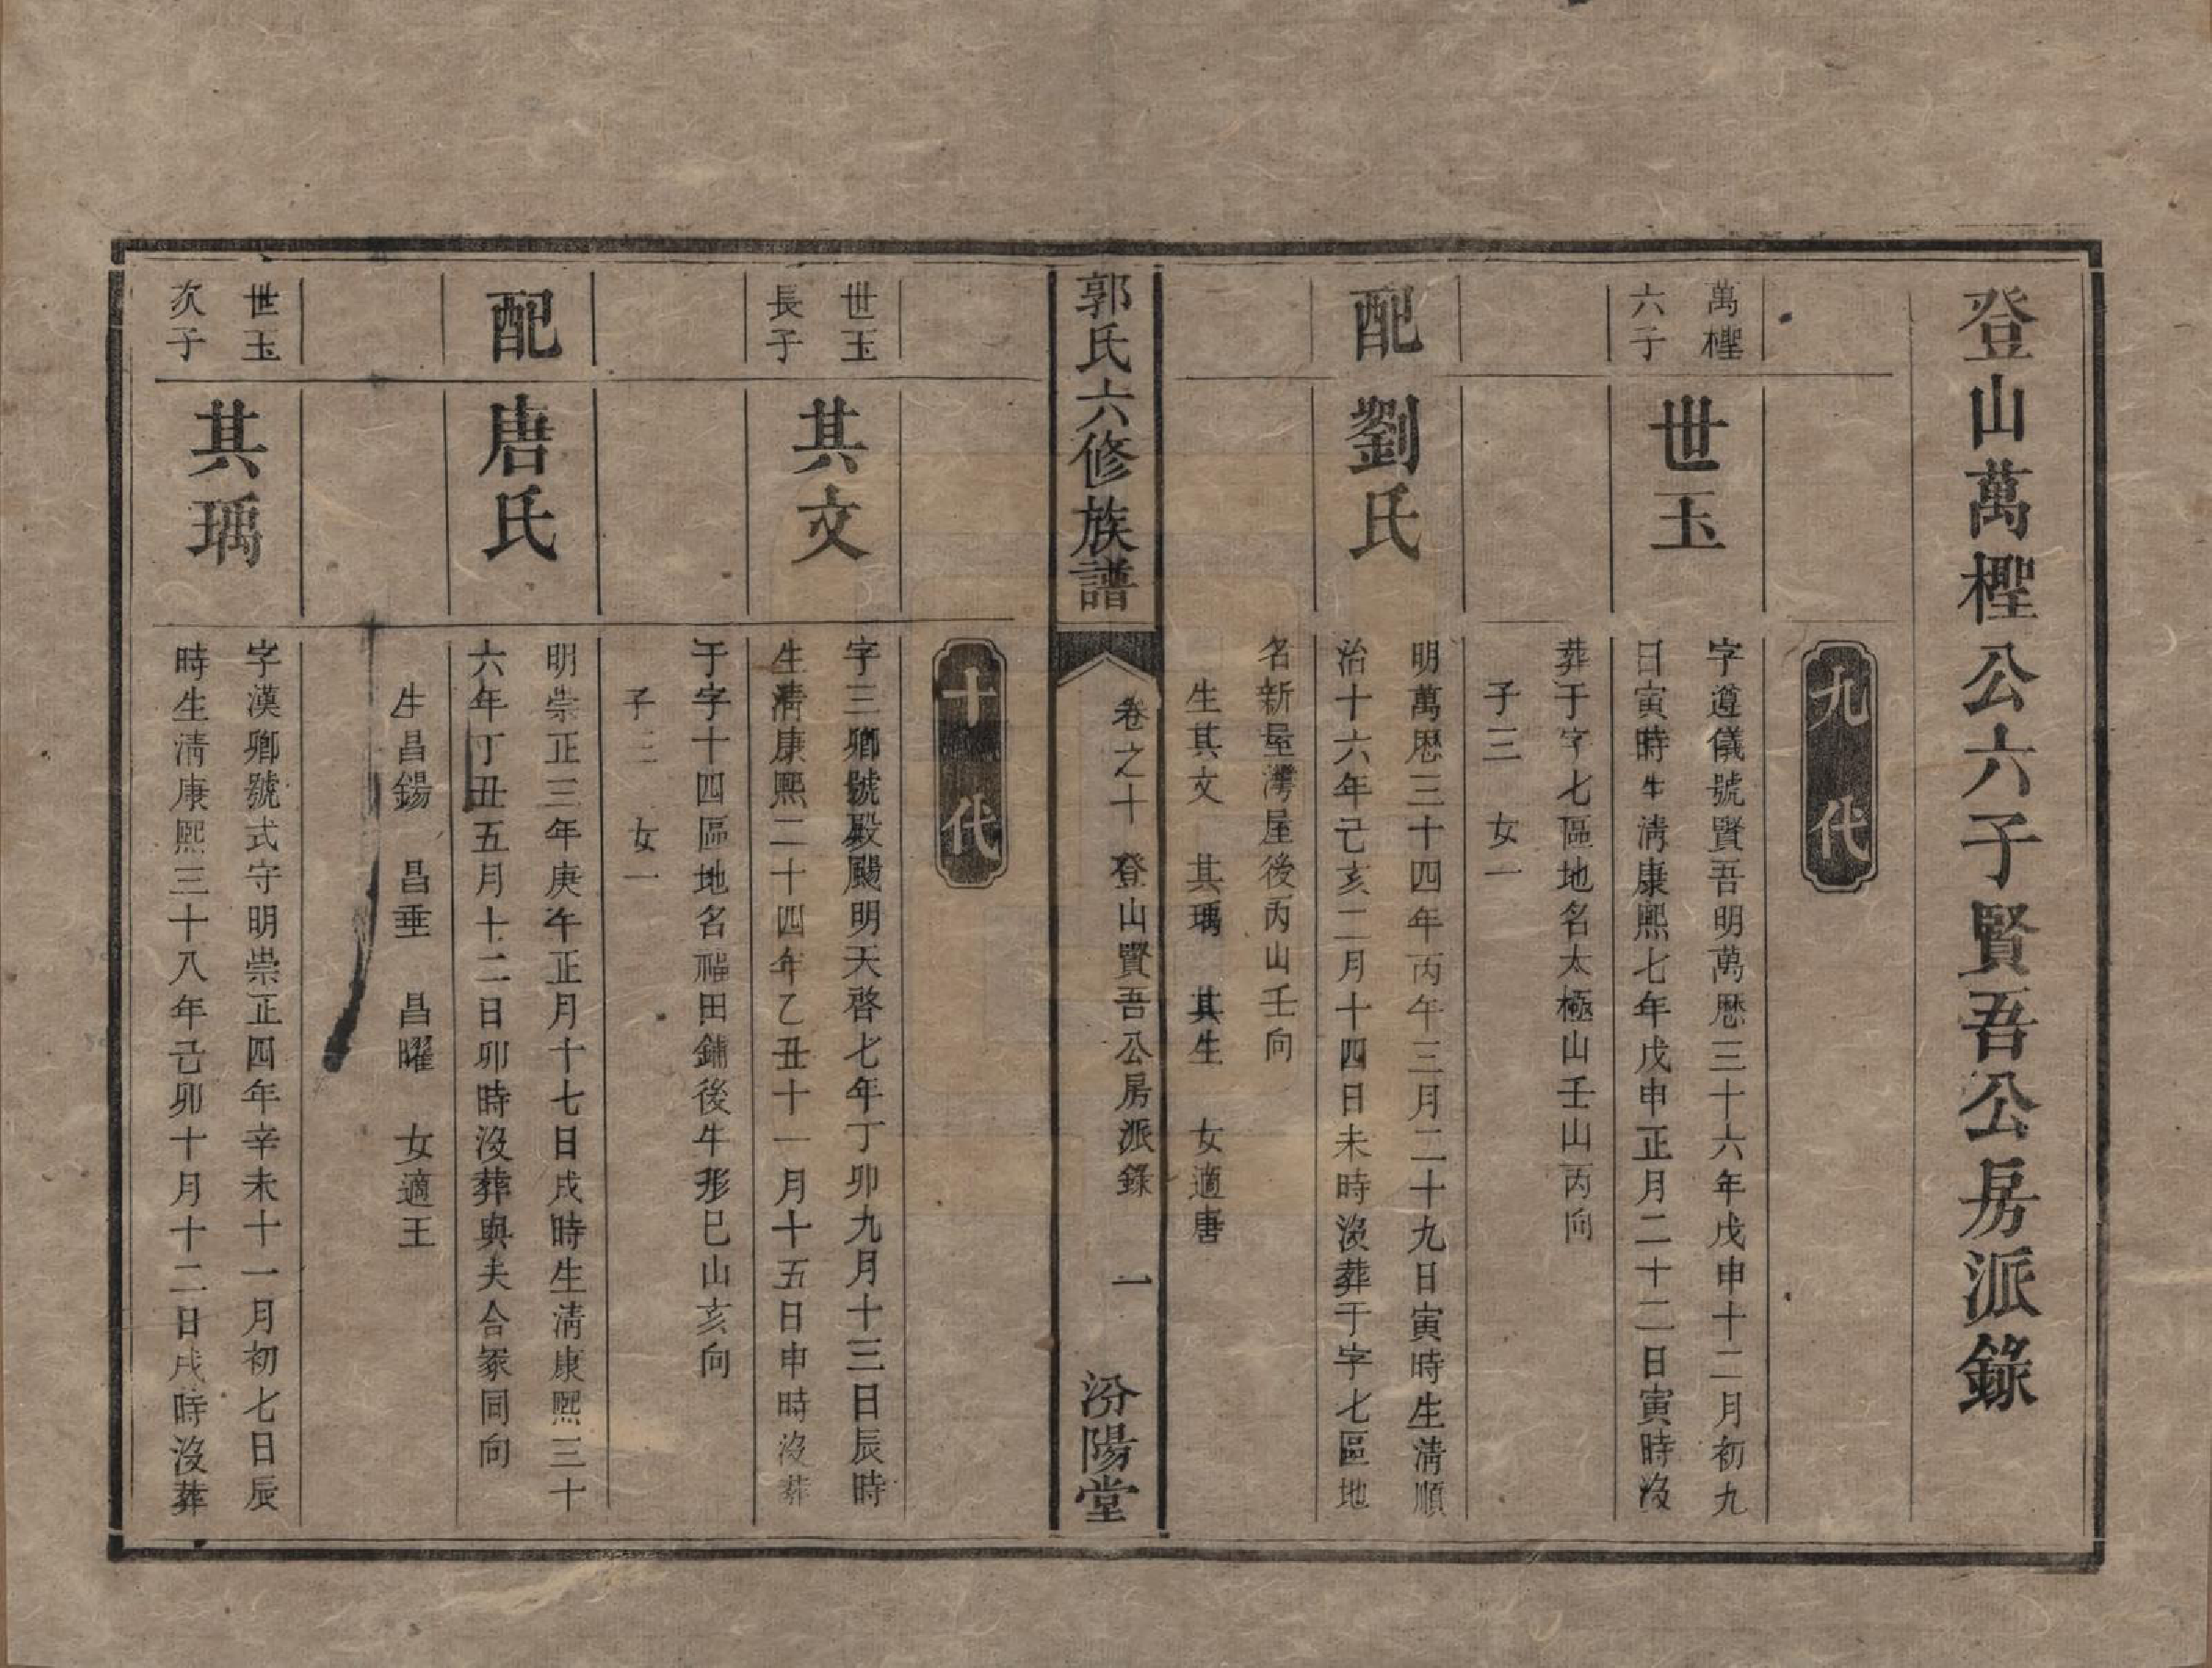 登山萬樫公六子賢吾公房派錄
九代
萬樫
六子
世玉
字遵儀號賢吾明萬歷三十六年戊申十二月初九
日寅時生淸康熙七年戊申正月二十二日寅時沒
葬于字七區地名太極山壬山丙向
子三 女一
配
劉氏
明萬歷三十四年丙午三月二十九日寅時生淸順
治十六年己亥二月十四日未時沒葬于字七區地
名新屋灣屋後丙山壬向
生其文 其瑀 其生 女適唐
郭氏六修族譜
卷之十 登山賢吾公房派錄 一
汾陽堂
十代
世玉
長子
其文
字三卿號殿颺明天啓七年丁卯九月十三日辰時
生淸康熙二十四年乙丑十一月十五日申時沒葬
于字十四區地名福田鋪後牛形巳山亥向
子三 女一
配
唐氏
明崇正三年庚午正月十七日戌時生淸康熙三十
六年丁丑五月十二日卯時沒葬與夫合冢同向
生昌錫 昌垂 昌曜 女適王
世玉
次子
其瑀
字漢卿號式守明崇正四年辛未十一月初七日辰
時生淸康熙三十八年己卯十月十二日戌時沒葬